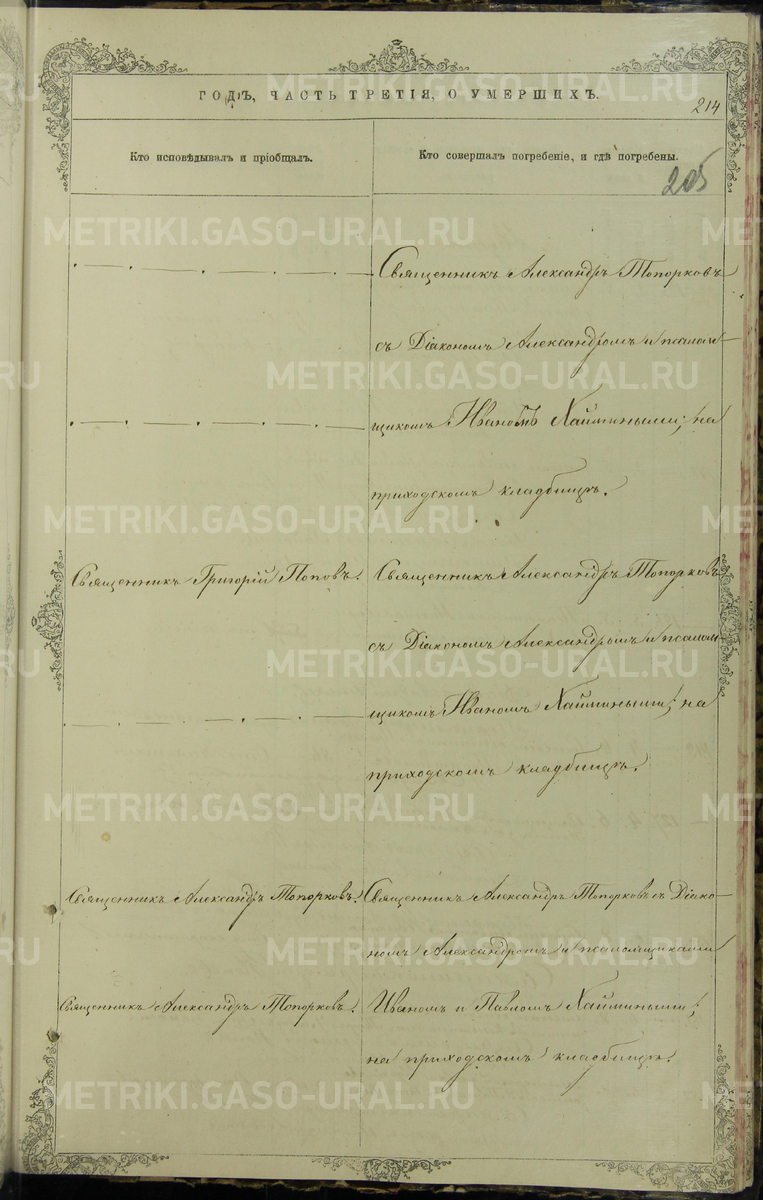 ГОДЪ, ЧАСТЬ ТРЕТІЯ, О УМЕРШИХЪ.
214
Кто исповѣдывалъ и пріобщалъ.
Кто совершалъ погребеніе, и гдѣ погребены.
205
METRIKI.GASO-URAL.RU
Священникъ Александръ Топорковъ
съ Діакономъ Александромъ и псалом-
щикомъ Иваномъ Хаймиными; на
приходскомъ кладбищѣ.
Священникъ Григорій Поповъ.
Священникъ Александръ Топорковъ
съ Діакономъ Александромъ и псалом-
щикомъ Иваномъ Хаймиными; на
приходскомъ кладбищѣ.
Священникъ Александръ Топорковъ.
Священникъ Александръ Топорковъ съ Діако-
номъ Александромъ и псаломщиками
Священникъ Александръ Топорковъ.
Иваномъ и Павломъ Хаймиными;
на приходскомъ кладбищѣ.